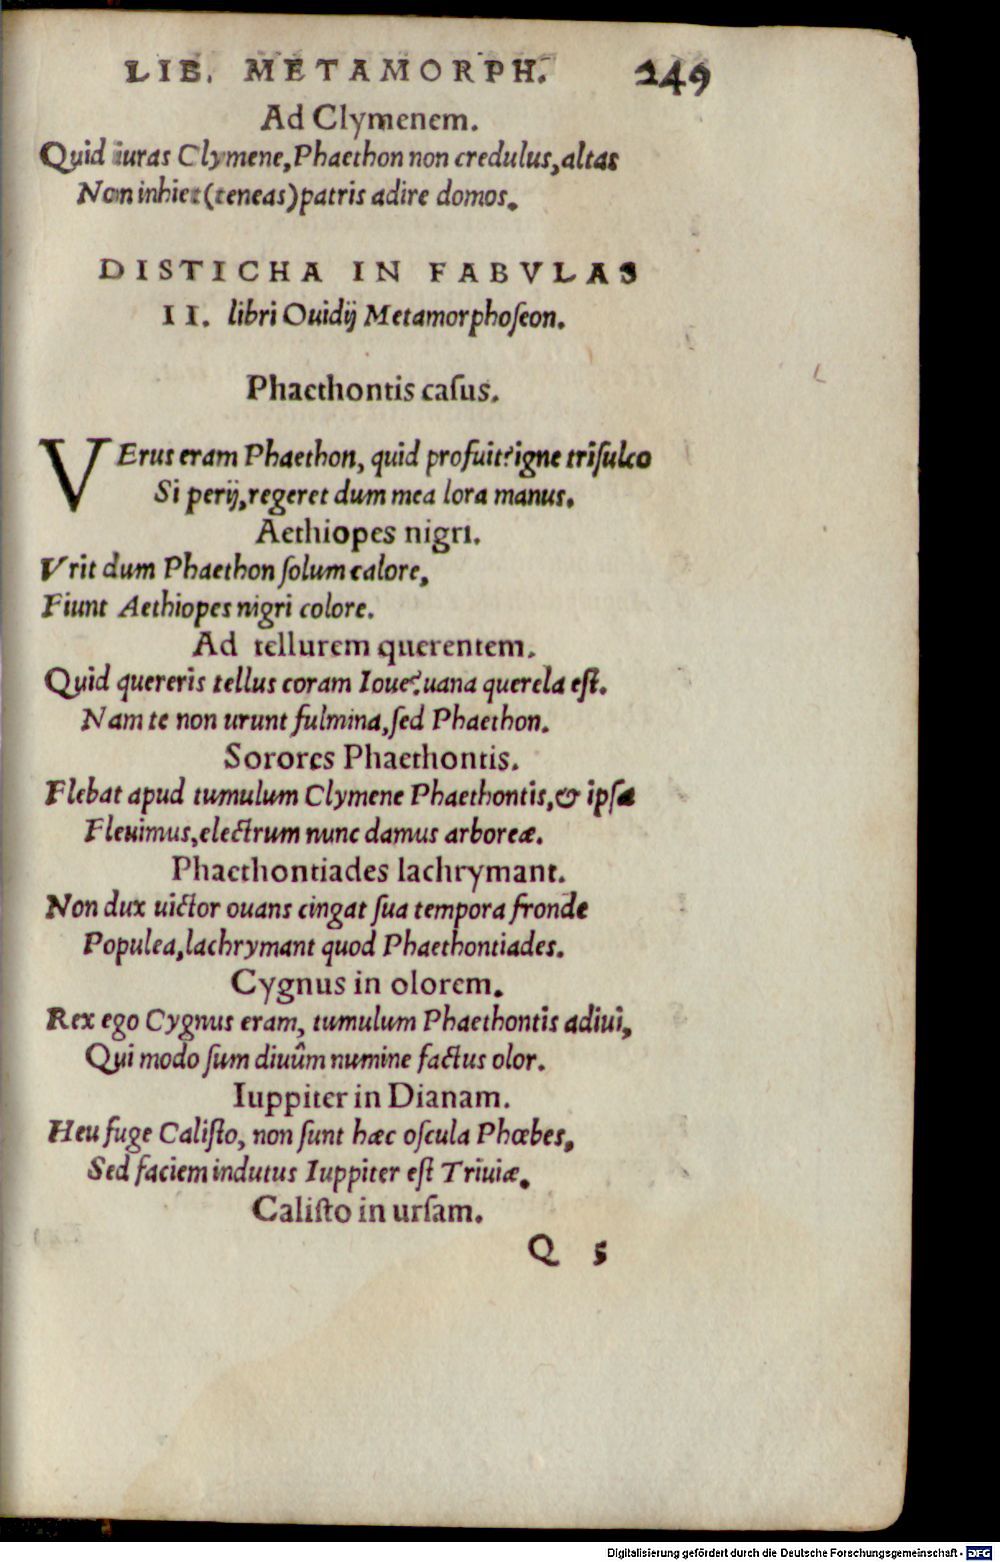 LIB. METAMORPH. 249
Ad Clymenem.
Quid iuras Clymene, Phaethon non credulus, altas
Non inhiet (teneas) patris adire domos.
DISTICHA IN FABVLAS
II. libri Ouidij Metamorphoſeon.
Phaethontis caſus.
VErus eram Phaethon, quid profuit? igne triſulco
Si perij, regeret dum mea lora manus.
Aethiopes nigri.
Vrit dum Phaethon ſolum calore,
Fiunt Aethiopes nigri colore.
Ad tellurem querentem.
Quid quereris tellus coram Ioue? uana querela eſt.
Nam te non urunt fulmina, ſed Phaethon.
Sorores Phaethontis.
Flebat apud tumulum Clymene Phaethontis, & ipſæ
Fleuimus, electrum nunc damus arboreæ.
Phaethontiades lachrymant.
Non dux uictor ouans cingat ſua tempora fronde
Populea, lachrymant quod Phaethontiades.
Cygnus in olorem.
Rex ego Cygnus eram, tumulum Phaethontis adiui,
Qui modo ſum diuûm numine factus olor.
Iuppiter in Dianam.
Heu fuge Caliſto, non ſunt hæc oſcula Phœbes,
Sed faciem indutus Iuppiter eſt Triuiæ.
Caliſto in urſam.
Q 5
Digitalisierung gefördert durch die Deutsche Forschungsgemeinschaft - DFG